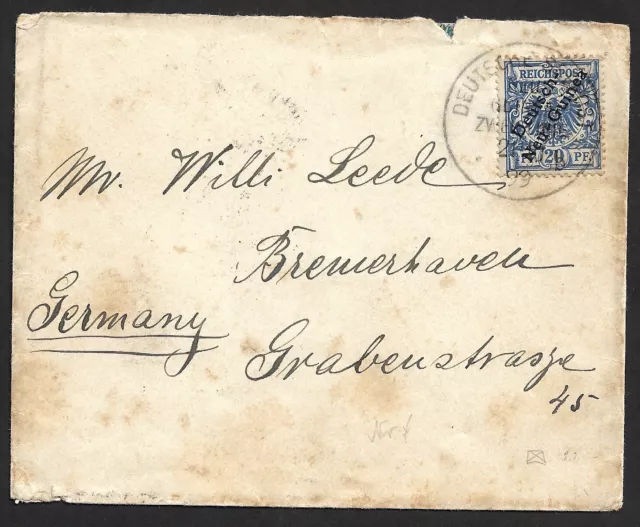 DEUTSCHE
REICHSPOST
Deutsch-
Neu-Guinea
20 20 PF.
99
Mr. Willi Leede
Bremerhaven
Germany
Grabenstrasze
45